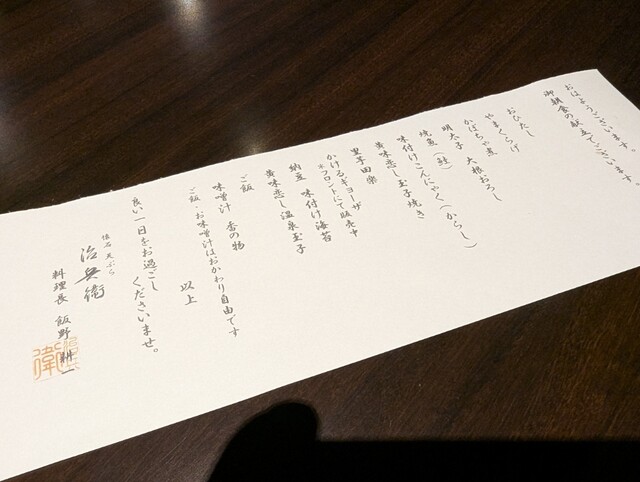 おはようございます。
御朝食の献立でございます。
おひたし
やまくらげ
かぼちゃ煮
明太子 大根おろし
焼魚(鮭)
味付けこんにゃく(からし)
黄味恋し玉子焼き
里芋田楽
かけるギョーザ
*フロントにて販売中
納豆 味付け海苔
黄味恋し温泉玉子
ご飯
味噌汁 香の物
ご飯・お味噌汁はおかわり自由です
以上
良い一日をお過ごし
くださいませ。
懐石 天ぷら
治兵衛
料理長 飯野 耕一